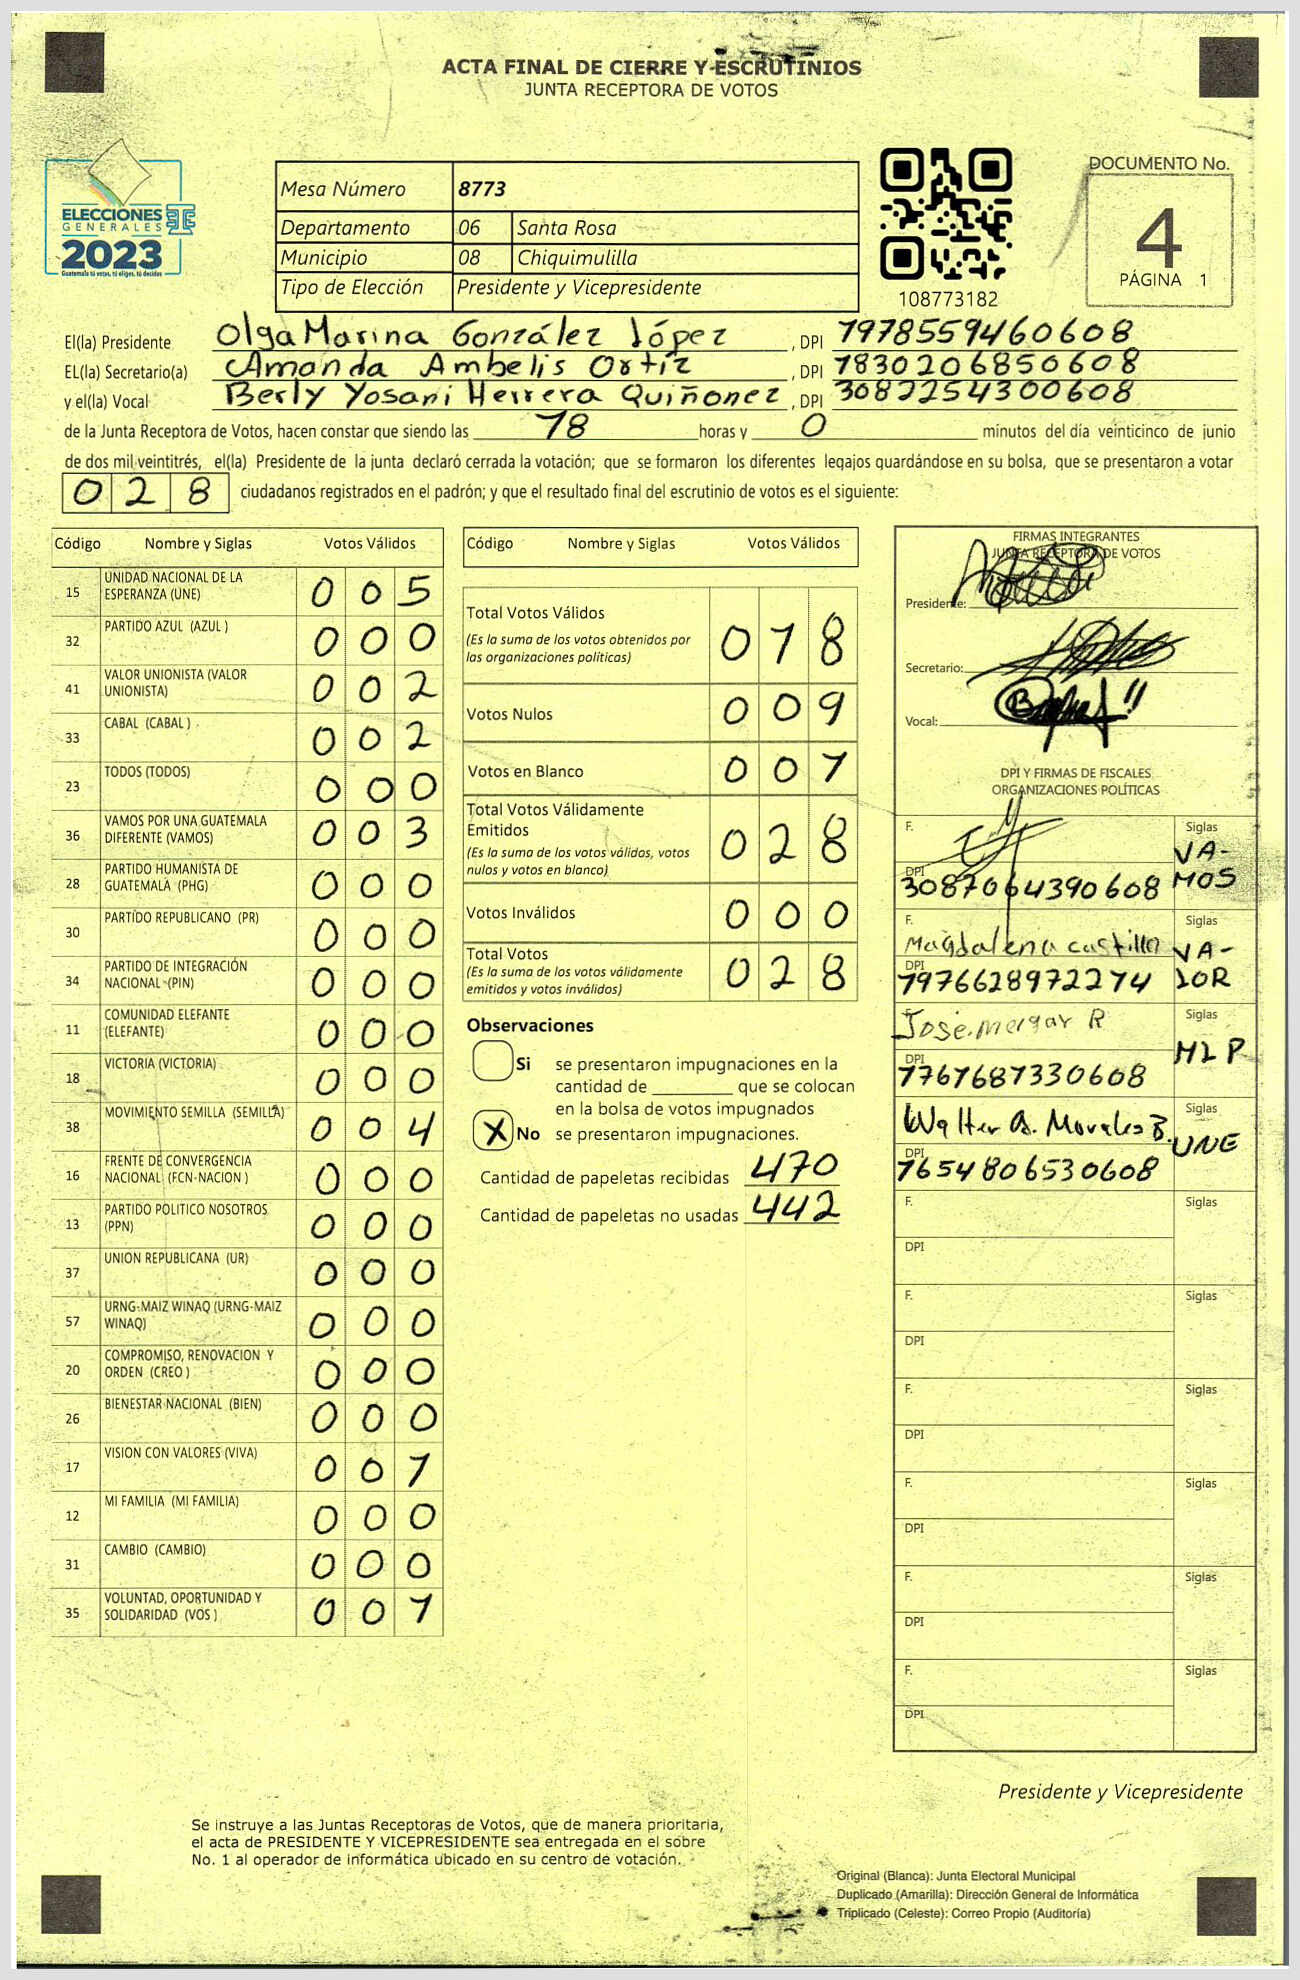 ACTA FINAL DE CIERRE Y ESCRUTINIOS
JUNTA RECEPTORA DE VOTOS
ELECCIONES
GENERALES
2023
Guatemala tú votas, tú eliges, tú decides
Mesa Número 8773
Departamento 06 Santa Rosa
Municipio 08 Chiquimulilla
Tipo de Elección Presidente y Vicepresidente
108773182
DOCUMENTO No.
4
PÁGINA 1
El(la) Presidente Olga Marina González López, DPI 1978559460608
EL(la) Secretario(a) Amanda Ambelis Ortíz, DPI 1830206850608
y el(la) Vocal Berly Yosani Herrera Quiñonez, DPI 3082254300608
de la Junta Receptora de Votos, hacen constar que siendo las 18 horas y 0 minutos del día veinticinco de junio
de dos mil veintitrés, el(la) Presidente de la junta declaró cerrada la votación; que se formaron los diferentes legajos guardándose en su bolsa, que se presentaron a votar
028 ciudadanos registrados en el padrón; y que el resultado final del escrutinio de votos es el siguiente:
Código Nombre y Siglas Votos Válidos
15 UNIDAD NACIONAL DE LA
ESPERANZA (UNE) 005
32 PARTIDO AZUL (AZUL ) 000
41 VALOR UNIONISTA (VALOR
UNIONISTA) 002
33 CABAL (CABAL ) 002
23 TODOS (TODOS) 000
36 VAMOS POR UNA GUATEMALA
DIFERENTE (VAMOS) 003
28 PARTIDO HUMANISTA DE
GUATEMALA (PHG) 000
30 PARTIDO REPUBLICANO (PR) 000
34 PARTIDO DE INTEGRACIÓN
NACIONAL (PIN) 000
11 COMUNIDAD ELEFANTE
(ELEFANTE) 000
18 VICTORIA (VICTORIA) 000
38 MOVIMIENTO SEMILLA (SEMILLA) 004
16 FRENTE DE CONVERGENCIA
NACIONAL (FCN-NACION ) 000
13 PARTIDO POLITICO NOSOTROS
(PPN) 000
37 UNION REPUBLICANA (UR) 000
57 URNG-MAIZ WINAQ (URNG-MAIZ
WINAQ) 000
20 COMPROMISO, RENOVACION Y
ORDEN (CREO ) 000
26 BIENESTAR NACIONAL (BIEN) 000
17 VISION CON VALORES (VIVA) 001
12 MI FAMILIA (MI FAMILIA) 000
31 CAMBIO (CAMBIO) 000
35 VOLUNTAD, OPORTUNIDAD Y
SOLIDARIDAD (VOS ) 001
Código Nombre y Siglas Votos Válidos
Total Votos Válidos 018
(Es la suma de los votos obtenidos por
las organizaciones políticas)
Votos Nulos 009
Votos en Blanco 001
Total Votos Válidamente
Emitidos 028
(Es la suma de los votos válidos, votos
nulos y votos en blanco)
Votos Inválidos 000
Total Votos 028
(Es la suma de los votos válidamente
emitidos y votos inválidos)
Observaciones
Si se presentaron impugnaciones en la
cantidad de ________ que se colocan
en la bolsa de votos impugnados
X No se presentaron impugnaciones.
Cantidad de papeletas recibidas 470
Cantidad de papeletas no usadas 442
FIRMAS INTEGRANTES
JUNTA RECEPTORA DE VOTOS
Presidente:
Secretario:
Vocal:
DPI Y FIRMAS DE FISCALES
ORGANIZACIONES POLÍTICAS
F. Siglas VA-
MOS
DPI 3081064390608
F. Magdalena Castillo Siglas VA-
LOR
DPI 1976628972274
Jose Melgar R Siglas MLP
DPI 1767687330608
Walter A. Morales B. Siglas UNE
DPI 1654806530608
F. Siglas
DPI
F. Siglas
DPI
F. Siglas
DPI
F. Siglas
DPI
F. Siglas
DPI
F. Siglas
DPI
Presidente y Vicepresidente
Se instruye a las Juntas Receptoras de Votos, que de manera prioritaria,
el acta de PRESIDENTE Y VICEPRESIDENTE sea entregada en el sobre
No. 1 al operador de informática ubicado en su centro de votación.
Original (Blanca): Junta Electoral Municipal
Duplicado (Amarilla): Dirección General de Informática
Triplicado (Celeste): Correo Propio (Auditoría)